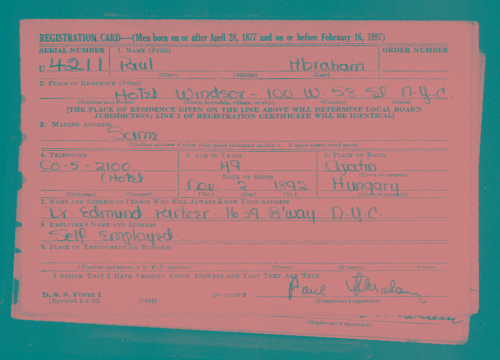 REGISTRATION CARD—(Men born on or after April 28, 1877 and on or before February 16, 1897)
SERIAL NUMBER 1. NAME (Print) ORDER NUMBER
U 4211 Paul Abraham
(First) (Middle) (Last)
2. PLACE OF RESIDENCE (Print)
Hotel Windsor - 100 W. 58 St N.Y.C.
(Number and street) (Town, township, village, or city) (County) (State)
[THE PLACE OF RESIDENCE GIVEN ON THE LINE ABOVE WILL DETERMINE LOCAL BOARD
JURISDICTION; LINE 2 OF REGISTRATION CERTIFICATE WILL BE IDENTICAL]
3. MAILING ADDRESS
Same
[Mailing address if other than place indicated on line 2. If same insert word same]
4. TELEPHONE 5. AGE IN YEARS 6. PLACE OF BIRTH
Co-5-2100 49 Apatin
DATE OF BIRTH (Town or county)
(Hotel Nov. 2 1892 Hungary
(Exchange) (Number) (Mo.) (Day) (Yr.) (State or country)
7. NAME AND ADDRESS OF PERSON WHO WILL ALWAYS KNOW YOUR ADDRESS
Dr. Edmund 1619 B'way - N.Y.C.
8. EMPLOYER'S NAME AND ADDRESS
Self Employed
9. PLACE OF EMPLOYMENT OR BUSINESS
(Number and street or R. F. D. number) (Town) (County) (State)
I AFFIRM THAT I HAVE VERIFIED ABOVE ANSWERS AND THAT THEY ARE TRUE.
D. S. S. Form 1 Paul Abraham
(Revised 4-1-42) (over) (Registrant's signature)
(Registrant's signature)